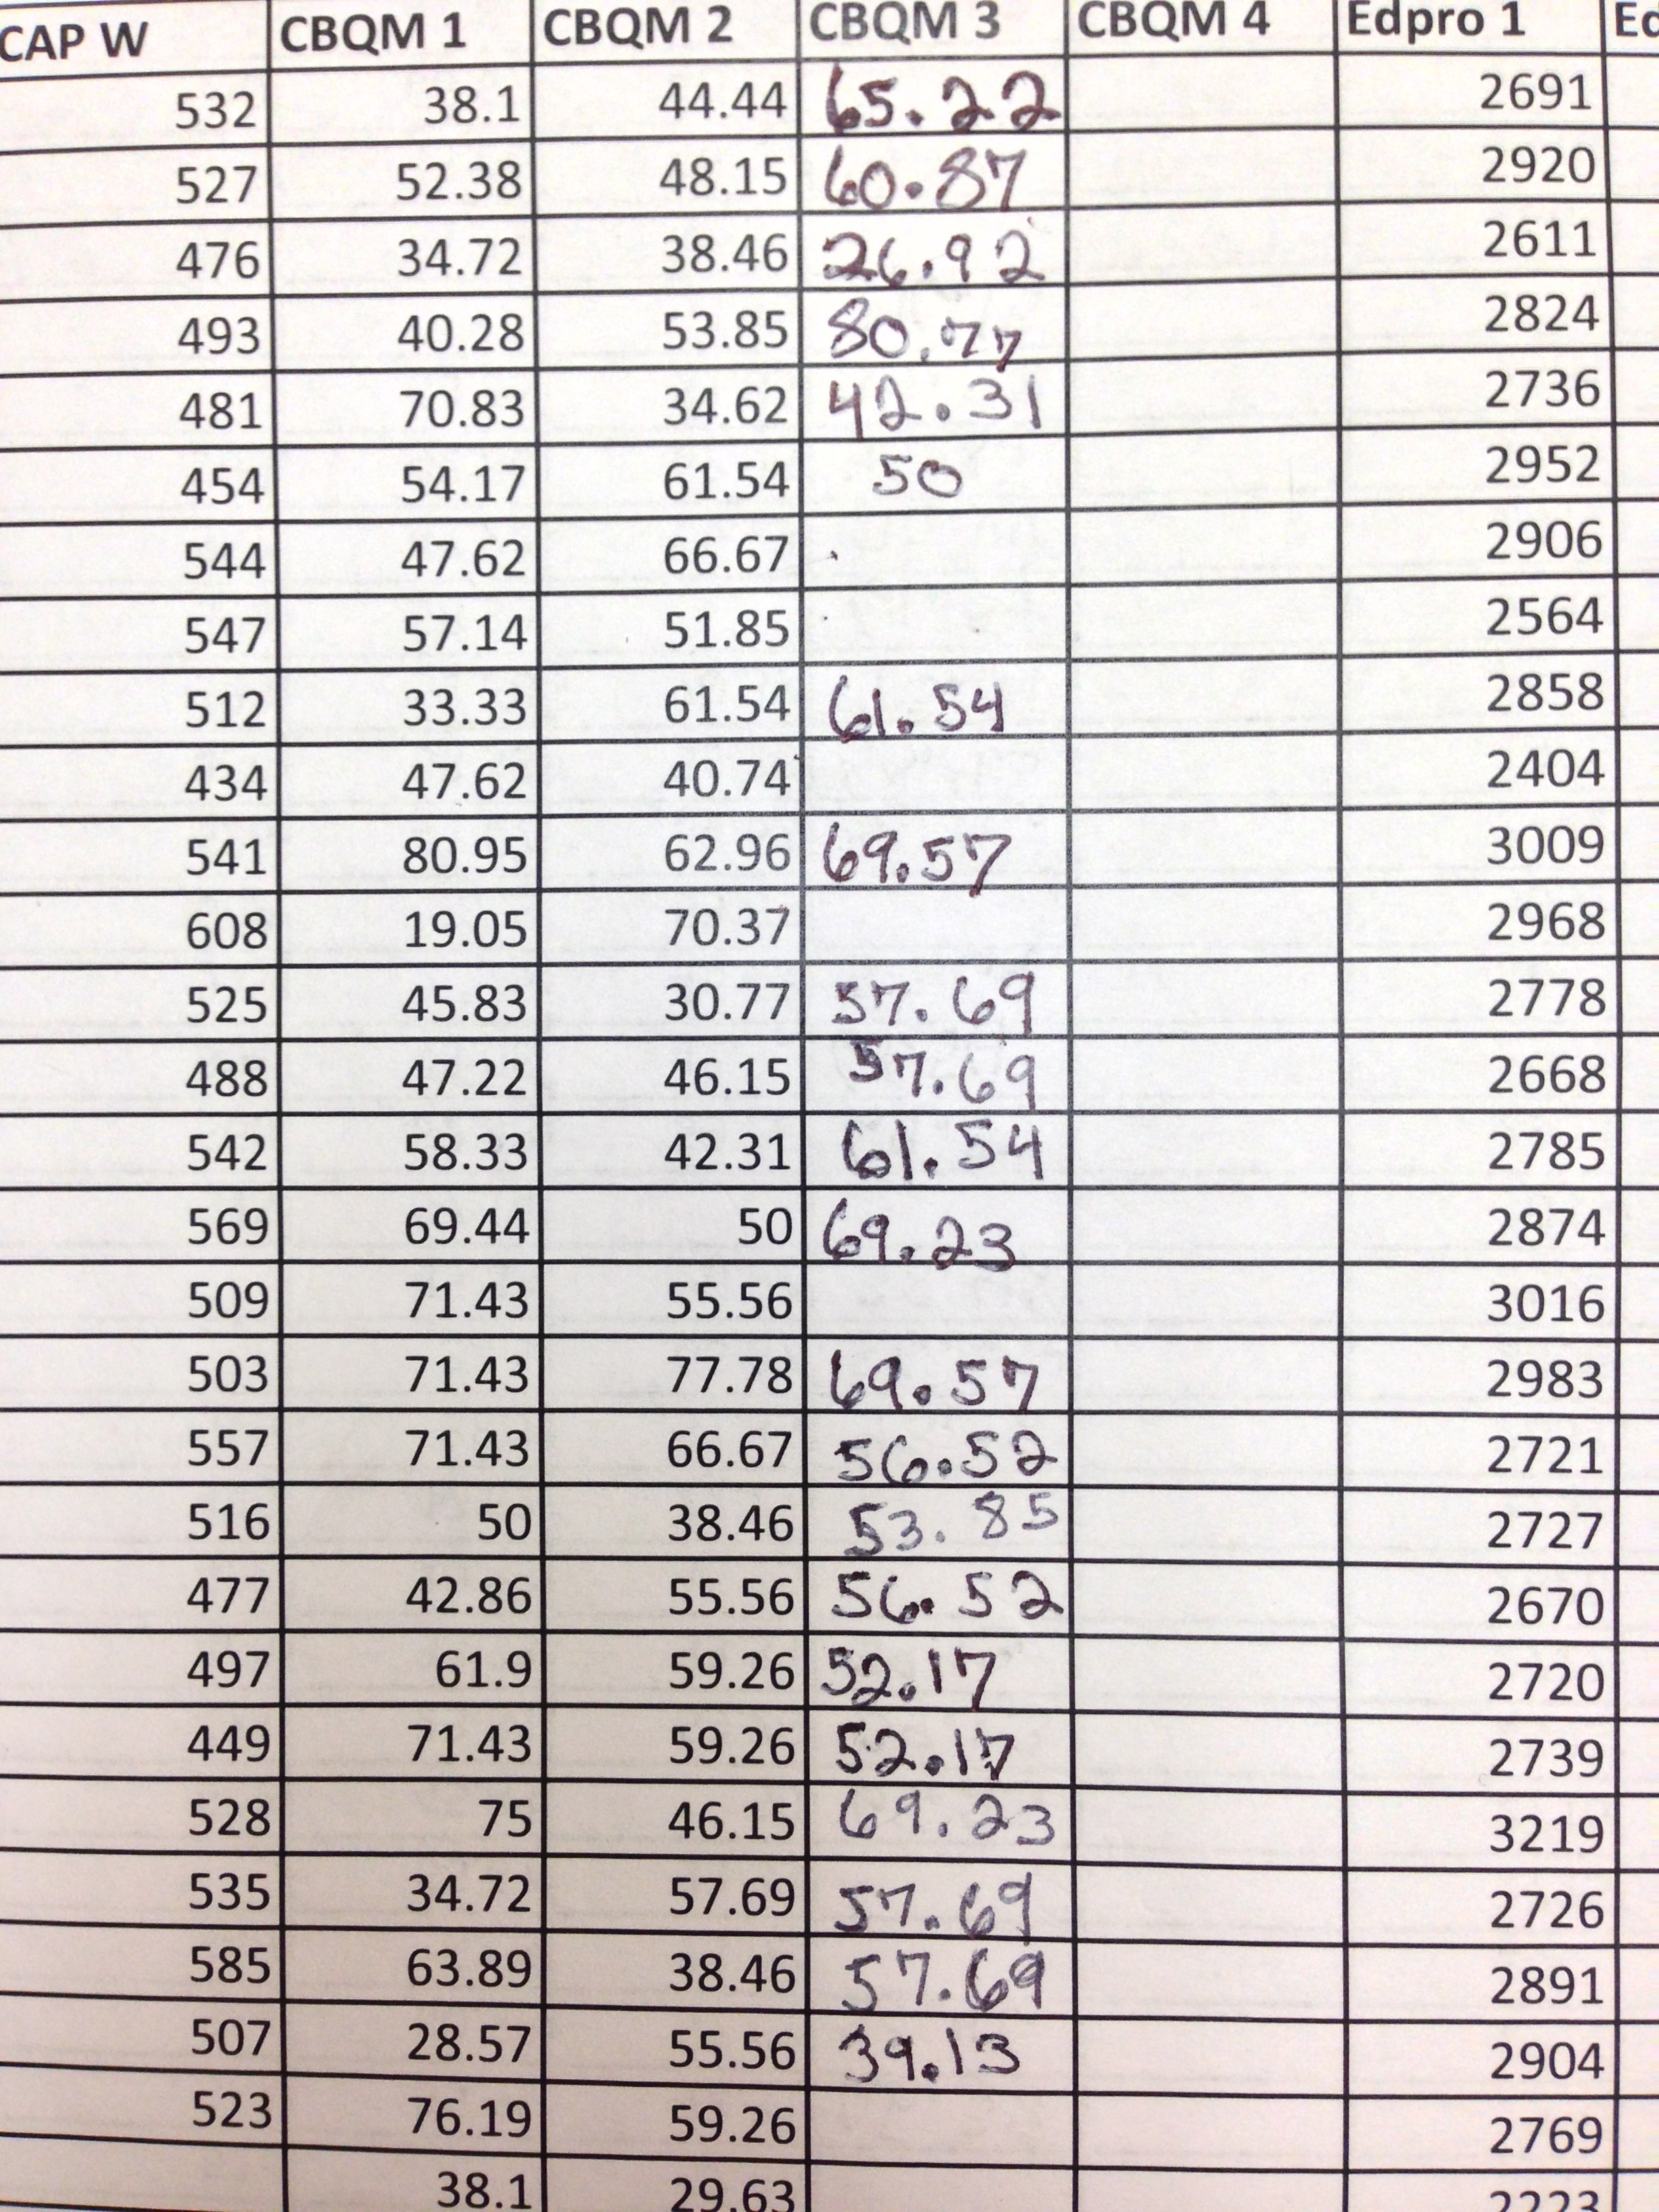 CAP W CBQM 1 CBQM 2 CBQM 3 CBQM 4 Edpro 1 Ed
532 38.1 44.44 65.22 2691
527 52.38 48.15 60.87 2920
476 34.72 38.46 26.92 2611
493 40.28 53.85 80.77 2824
481 70.83 34.62 42.31 2736
454 54.17 61.54 50 2952
544 47.62 66.67 2906
547 57.14 51.85 2564
512 33.33 61.54 61.54 2858
434 47.62 40.74 2404
541 80.95 62.96 69.57 3009
608 19.05 70.37 2968
525 45.83 30.77 57.69 2778
488 47.22 46.15 57.69 2668
542 58.33 42.31 61.54 2785
569 69.44 50 69.23 2874
509 71.43 55.56 3016
503 71.43 77.78 69.57 2983
557 71.43 66.67 56.52 2721
516 50 38.46 53.85 2727
477 42.86 55.56 56.52 2670
497 61.9 59.26 52.17 2720
449 71.43 59.26 52.17 2739
528 75 46.15 69.23 3219
535 34.72 57.69 57.69 2726
585 63.89 38.46 57.69 2891
507 28.57 55.56 39.13 2904
523 76.19 59.26 2769
38.1 29.63 2223